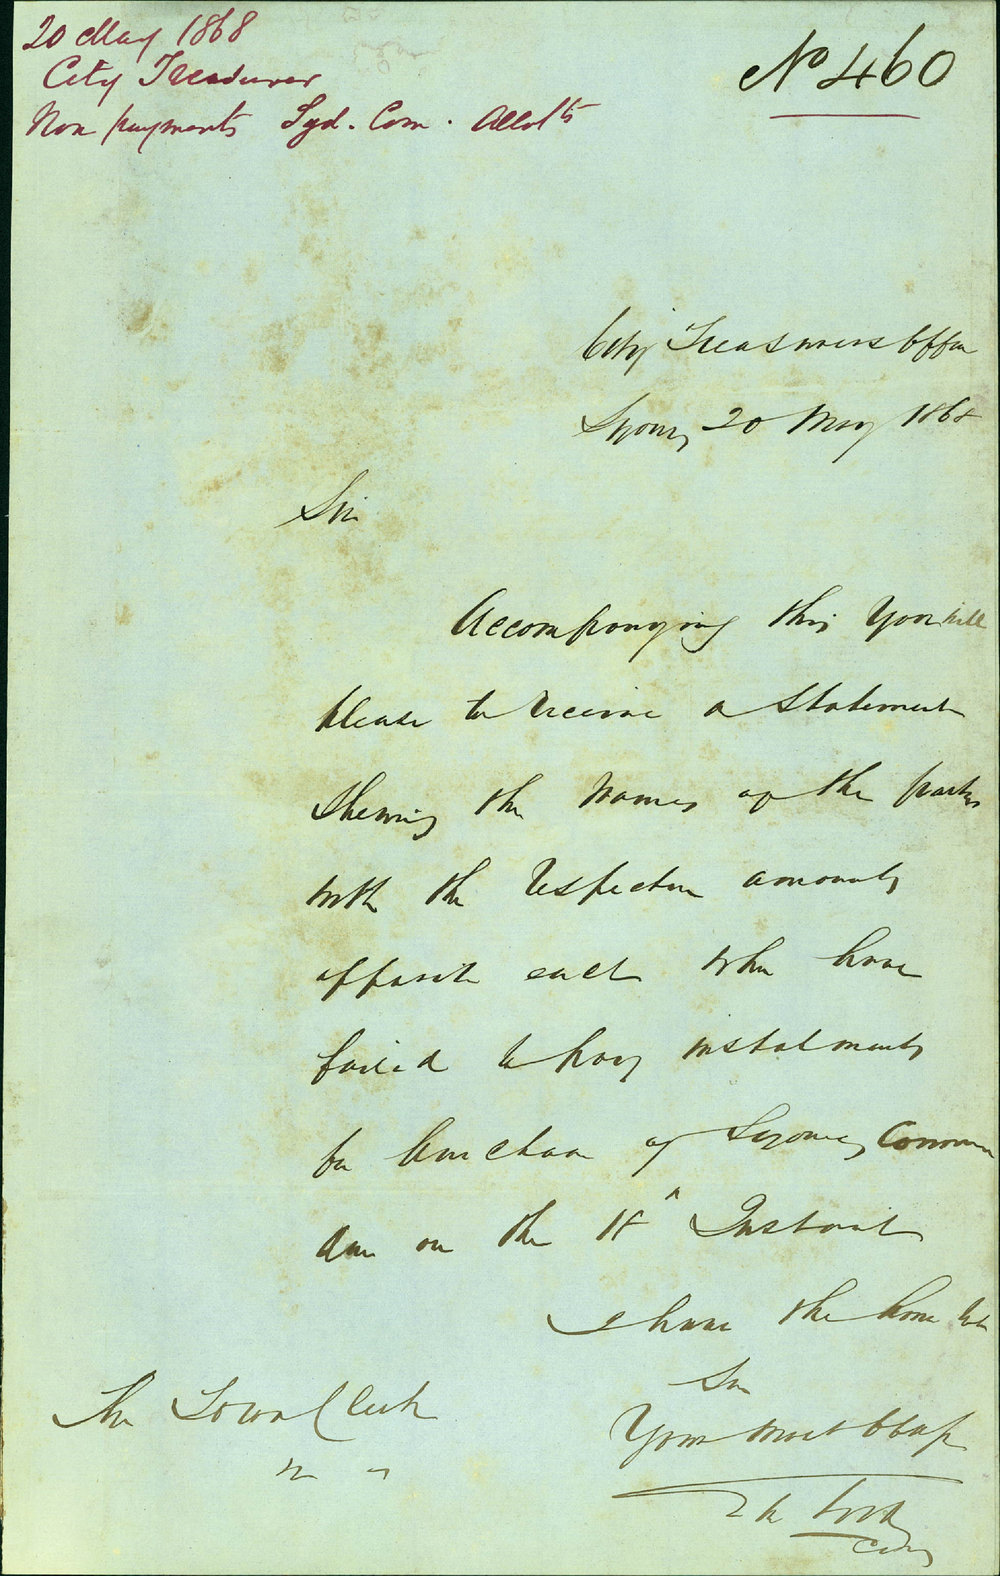 20 May 1868
City Treasurer
Non payments Syd. Com. Allots
No 460
City Treasurers Office
Sydney 20 May 1868
Sir
Accompanying this You will
please to receive a Statement
Shewing the Names of the parties
with the respective amounts
opposite each who have
failed to pay instalments
for Purchase of Sydney Common
due on the 18th Instant
I have the honor to be
Sir
Your most Obdt
The Town Clerk